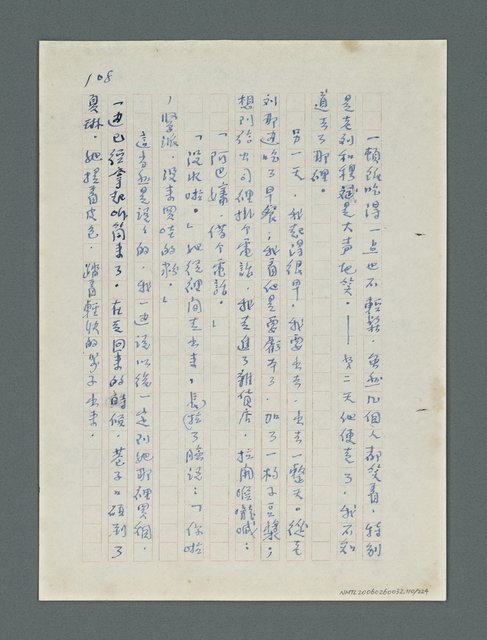 108
一頓飯吃得一点也不輕鬆，虽然几個人都笑着，特別
是老刘和穆斌是大声地笑。——第二天他便走了，我不知
道去了那裡。
另一天，我起得很早，我要出去，出去一整天。從老
刘那边吃了早餐；我看他是要歡本了，加了一杓子豆漿；
想到給公司裡掛个電話，我走進了雜貨店，拉開喉嚨喊：
「阿巴嬸，借个電話。」
「沒收啦。」她從裡间走出来，長（拉）了臉说：「你啦
，緊派，沒来買哇的粉。」
這当然是说说的，我一边说以後一定到她那裡買個，
一边已經拿起听筒来了。在走回来的時候，巷子口碰到了
夏琳。她提着皮包，踏着輕快的步子出来。
NMTL20060260032.110/224